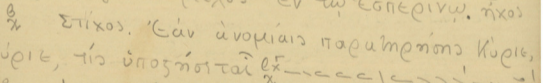 ἐν τῷ ἑσπερινῷ. ἦχος
Στίχος. Ἐὰν ἀνομίαις παρατηρήσῃς Κύριε,
ύριε, τίς ὑποστήσεται